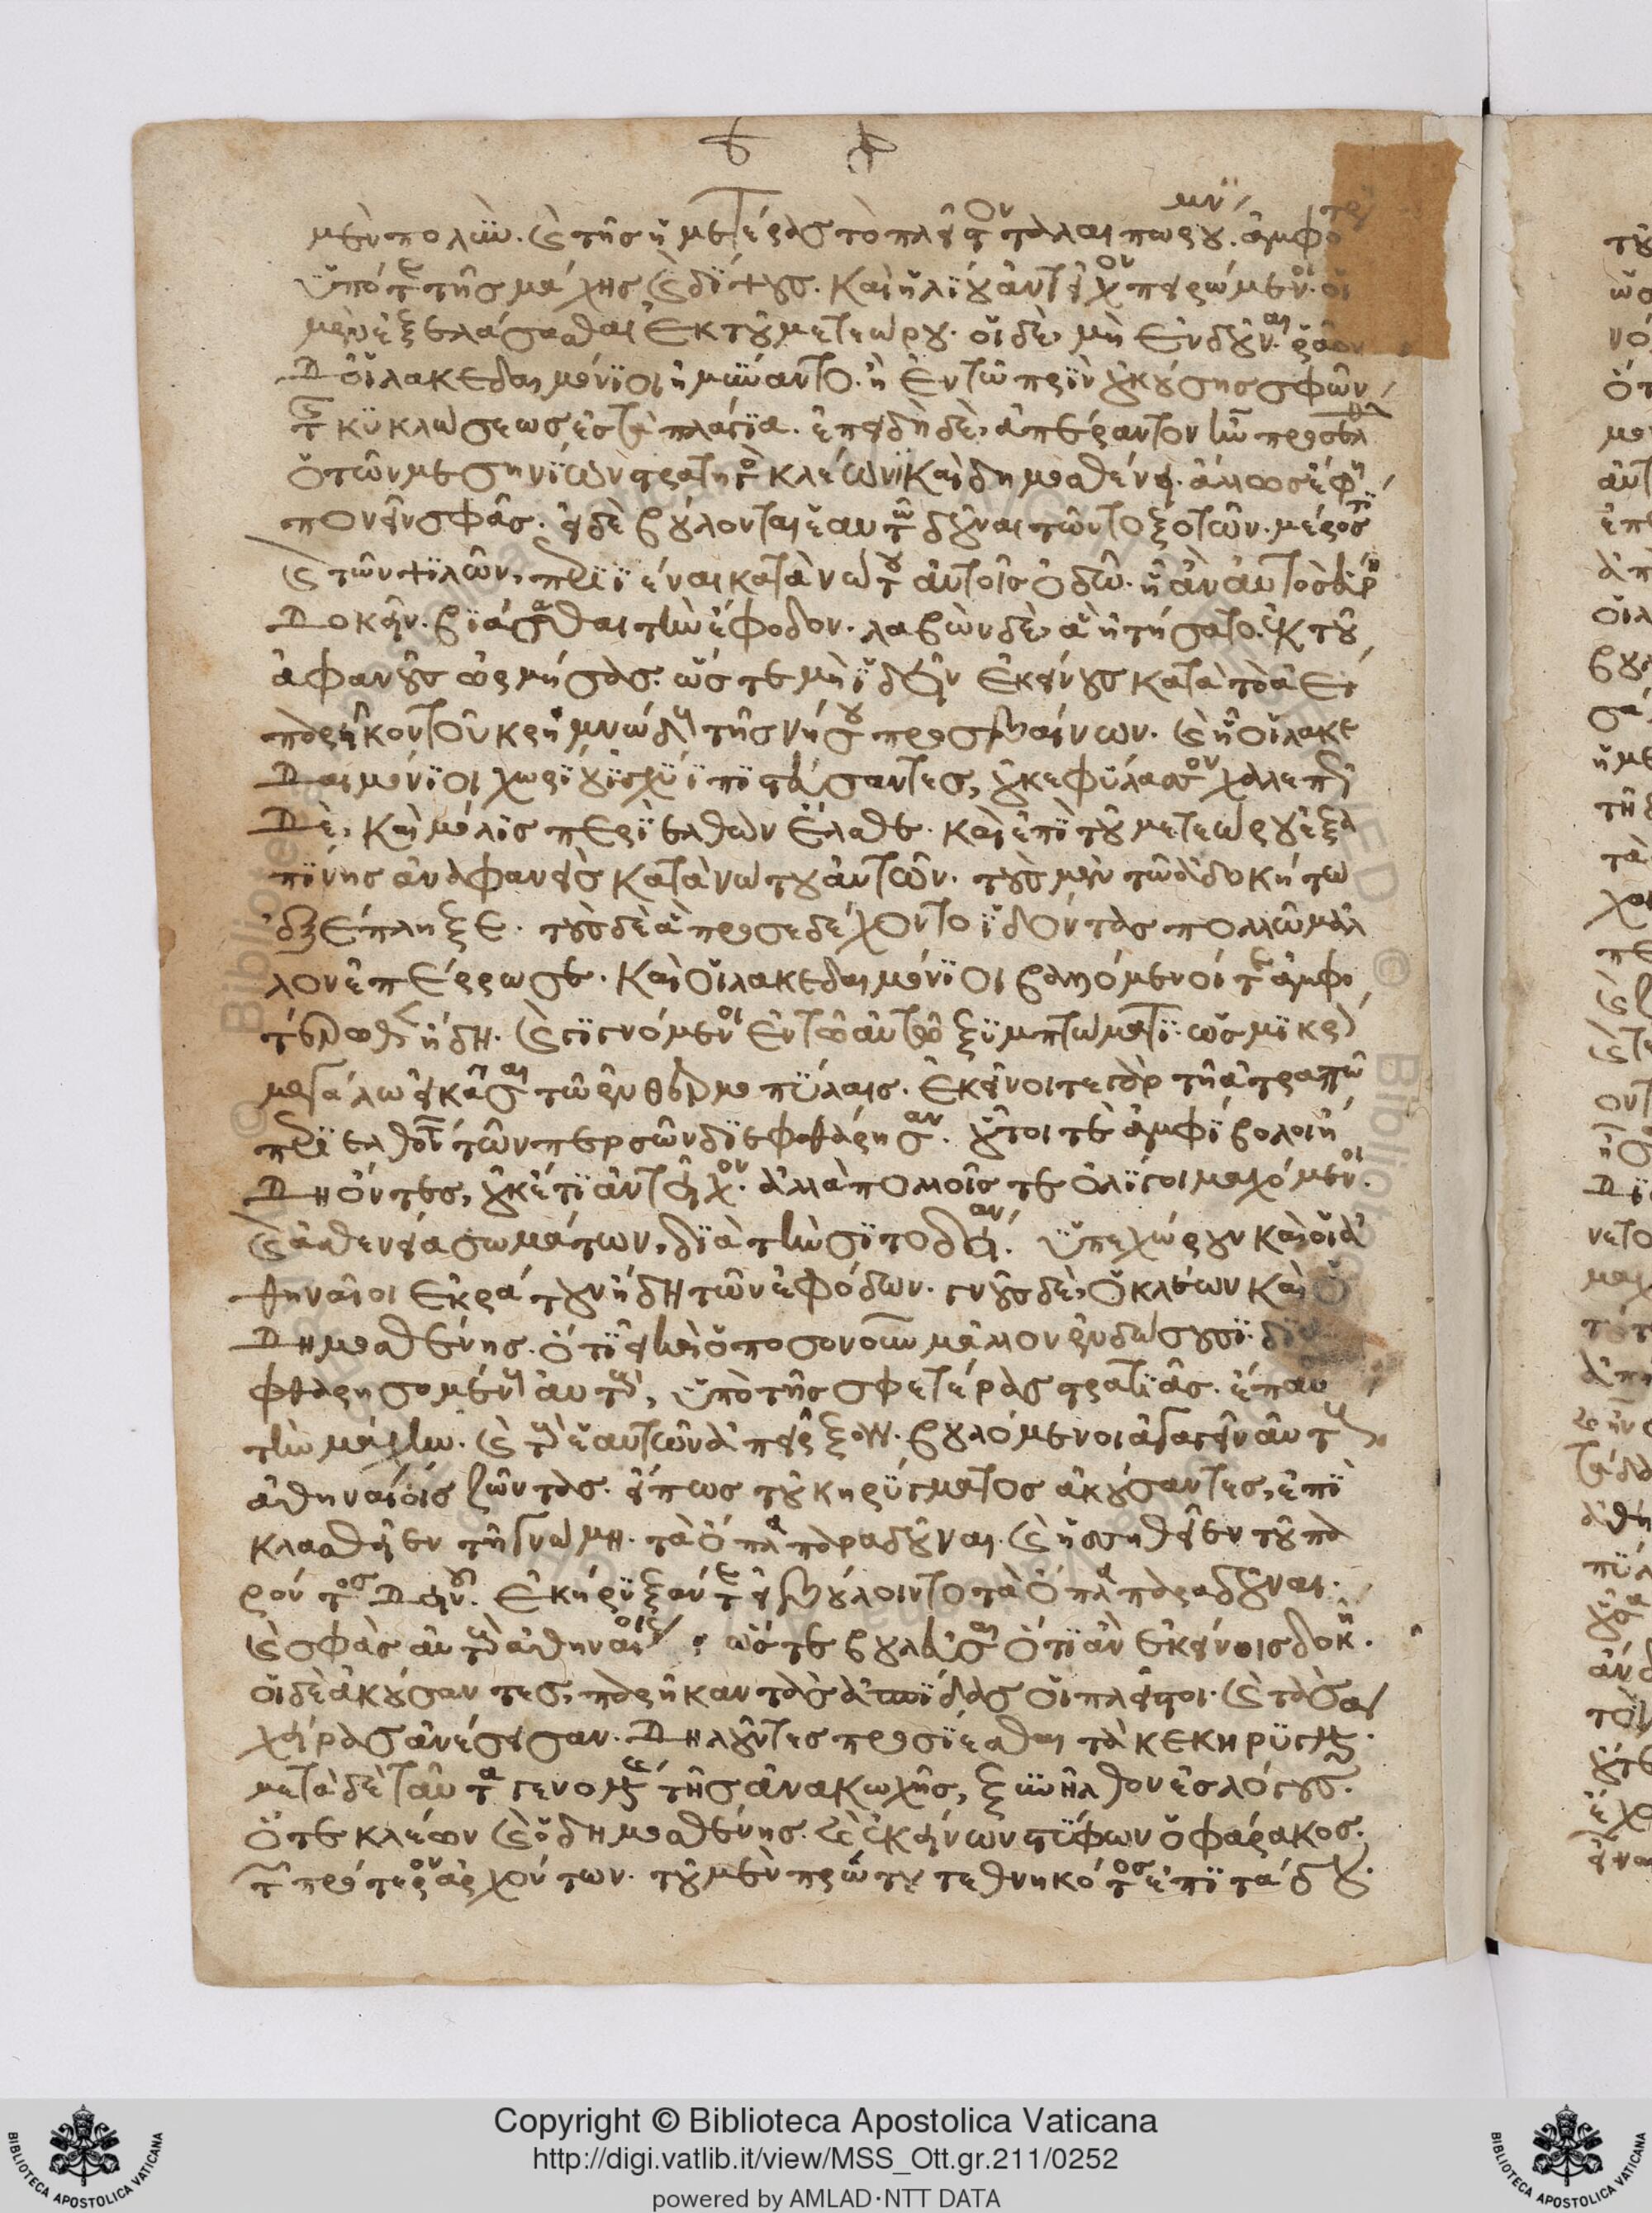 μὲν πολὺν καὶ τῆς ἡμέρας τὸ πλεῖστον ταλαιπωρούμενοι ἀμφότεροι
ὑπό τε τῆς μάχης καὶ δίψους καὶ ἡλίου ἀντεῖχον πειρώμενοι οἱ
μὲν ἐξελάσασθαι ἐκ τοῦ μετεώρου. οἱ δὲ μὴ ἐνδοῦναι ῥᾷον
δ' οἱ λακεδαιμόνιοι ἠμύναντο. ἢ ἐν τῷ πρὶν οὐκ οὔσης σφῶν
τῆς κυκλώσεως ἐς τὰ πλάγια. ἐπειδὴ δὲ ἀπέραντον ἦν προσελ
ὁ τῶν μεσηνίων στρατηγὸς κλέωνι καὶ δημοσθένει. ἄλλως ἔφη
πονεῖν σφᾶς. εἰ δὲ βούλονται ἑαυτῷ δοῦναι τῶν τοξοτῶν μέρος τι
καὶ τῶν ψιλῶν περιϊέναι κατὰ νώτου αὐτοῖς ὁδῷ ᾗ ἂν αὐτὸς εὕρῃ
δοκεῖν βιάσασθαι τὴν ἔφοδον. λαβὼν δὲ ἃ ᾐτήσατο ἐκ τοῦ
ἀφανοῦς ὁρμήσας. ὥστε μὴ ἰδεῖν ἐκείνους κατὰ τὸ ἀεὶ
παρῆκον τοῦ κρημνώδους τῆς νήσου προσβαίνων. καὶ ᾗ οἱ λακε
δαιμόνιοι χωρίου ἰσχύϊ πιστεύσαντες, οὐκ ἐφύλασσον χαλεπῶς
δὲ καὶ μόλις περιελθὼν ἔλαθε. καὶ ἐπὶ τοῦ μετεώρου ἐξα
πίνης ἀναφανεὶς κατὰ νώτου αὐτῶν. τοὺς μὲν τῷ ἀδοκήτῳ
ἐξέπληξε. τοὺς δὲ ἃ προσεδέχοντο ἰδόντας πολλῷ μᾶλ
λον ἐπέρρωσε. καὶ οἱ λακεδαιμόνιοι βαλλόμενοί τε ἀμφο
τέρωθεν ἤδη. καὶ γιγνόμενοι ἐν τῷ αὐτῷ ξυμπτώματι ὡς μικρῷ
μεγάλῳ εἰκάσαι τῷ ἐν θερμοπύλαις. ἐκεῖνοί τε γὰρ τῇ ἀτραπῷ
περιελθόντων τῶν περσῶν διεφθάρησαν. οὗτοί τε ἀμφίβολοι ἤ
δη ὄντες, οὐκέτι ἀντεῖχον. ἀλλὰ πολλοῖς τε ὀλίγοι μαχόμενοι
καὶ ἀσθενείᾳ σωμάτων διὰ τὴν σιτοδείαν. ὑπεχώρουν καὶ οἱ ἀ
θηναῖοι ἐκράτουν ἤδη τῶν ἐφόδων. γνοὺς δὲ ὁ κλέων καὶ ὁ
δημοσθένης. ὅτι εἰ καὶ ὁποσονοῦν μᾶλλον ἐνδώσουσι δια
φθαρησομένους αὐτοὺς, ὑπὸ τῆς σφετέρας στρατιᾶς. ἔπαυσαν
τὴν μάχην. καὶ τοὺς ἑαυτῶν ἀπεῖρξαν. βουλόμενοι ἀγαγεῖν αὐτοὺς
ἀθηναίοις ζῶντας. εἴ πως τοῦ κηρύγματος ἀκούσαντες, ἐπὶ
κλασθεῖεν τῇ γνώμῃ τὰ ὅπλα παραδοῦναι. καὶ ἡσσηθεῖεν τοῦ πα
ρόντος δεινοῦ. ἐκήρυξάν τε εἰ βούλοιντο τὰ ὅπλα παραδοῦναι
καὶ σφᾶς αὐτοὺς ἀθηναίοις, ὥστε βουλεῦσαι ὅτι ἂν ἐκείνοις δοκῇ.
οἱ δὲ ἀκούσαντες, παρῆκαν τὰς ἀσπίδας οἱ πλεῖστοι. καὶ τὰς
χεῖρας ἀνέσεισαν. δηλοῦντες προσίεσθαι τὰ κεκηρυγμένα.
μετὰ δὲ ταῦτα γενομένης τῆς ἀνακωχῆς, ξυνῆλθον ἐς λόγους.
ὅ τε κλέων καὶ ὁ δημοσθένης. καὶ ἐκείνων στύφων ὁ φάρακος.
τῶν πρότερον ἀρχόντων. τοῦ μὲν πρώτου τεθνηκότος ἐπιτάδου.